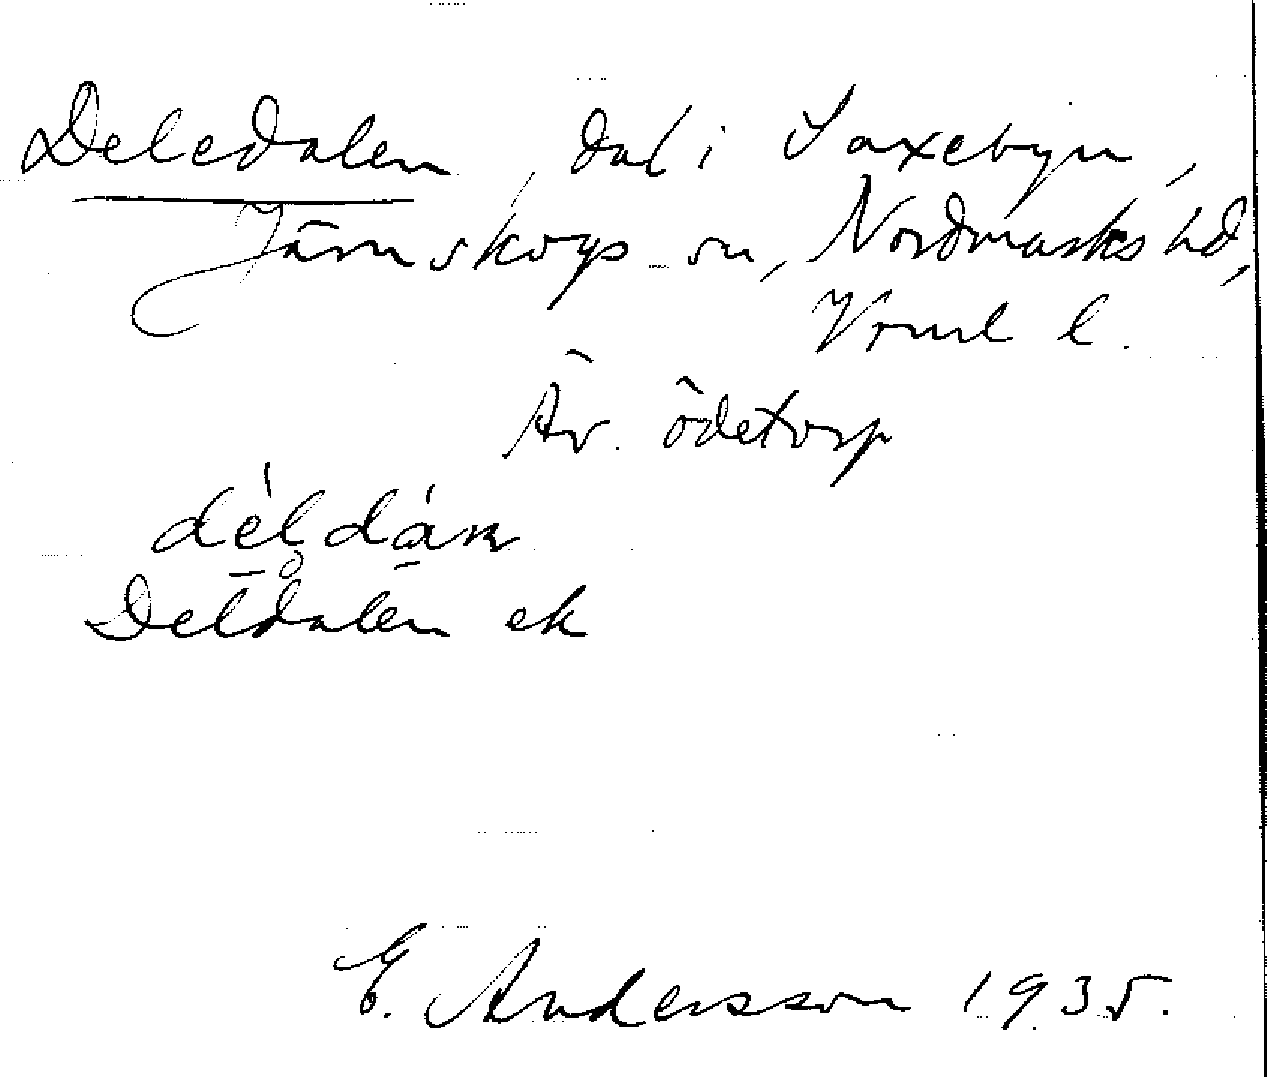 Deledalen, dal i Saxebyn,
Järnskogs sn, Nordmarks hd,
Vrml l.
Äv. ödetorp
dèl dán
Deldalen ek
E. Andersson 1935.